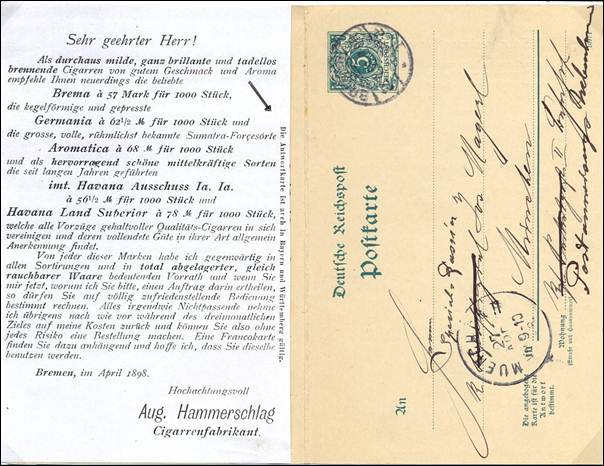 Sehr geehrter Herr!
Als durchaus milde, ganz brillante und tadellos
brennende Cigarren von gutem Geschmack und Aroma
empfehle Ihnen neuerdings die beliebte
Brema à 57 Mark für 1000 Stück,
die kegelförmige und gepresste
Germania à 62½ M für 1000 Stück und
die grosse, volle, rühmlichst bekannte Sumatra-Forçesorte
Aromatica à 68 M für 1000 Stück
und als hervorragend schöne mittelkräftige Sorten
die seit langen Jahren geführten
imt. Havana Ausschuss Ia. Ia.
à 56½ M für 1000 Stück und
Havana Land Superior à 78 M für 1000 Stück,
welche alle Vorzüge gehaltvoller Qualitäts-Cigarren in sich
vereinigen und deren vollendete Güte in ihrer Art allgemein
Anerkennung findet.
Von jeder dieser Marken habe ich gegenwärtig in
allen Sortirungen und in total abgelagerter, gleich
rauchbarer Waare bedeutenden Vorrath und wenn Sie
mir jetzt, worum ich Sie bitte, einen Auftrag darin ertheilen,
so dürfen Sie auf völlig zufriedenstellende Bedienung
bestimmt rechnen. Alles irgendwie Nichtpassende nehme
ich übrigens nach wie vor während des dreimonatlichen
Zieles auf meine Kosten zurück und können Sie also ohne
jedes Risiko eine Bestellung machen. Eine Francokarte
finden Sie dazu anhängend und hoffe ich, dass Sie dieselbe
benutzen werden.
Bremen, im April 1898.
Hochachtungsvoll
Aug. Hammerschlag
Cigarrenfabrikant.
Die Antwortkarte ist auch in Bayern und Württemberg gültig.
Deutsche Reichspost
Postkarte
An
München
Wohnung
Die angebogene
Karte ist für die
Antwort
bestimmt.
5